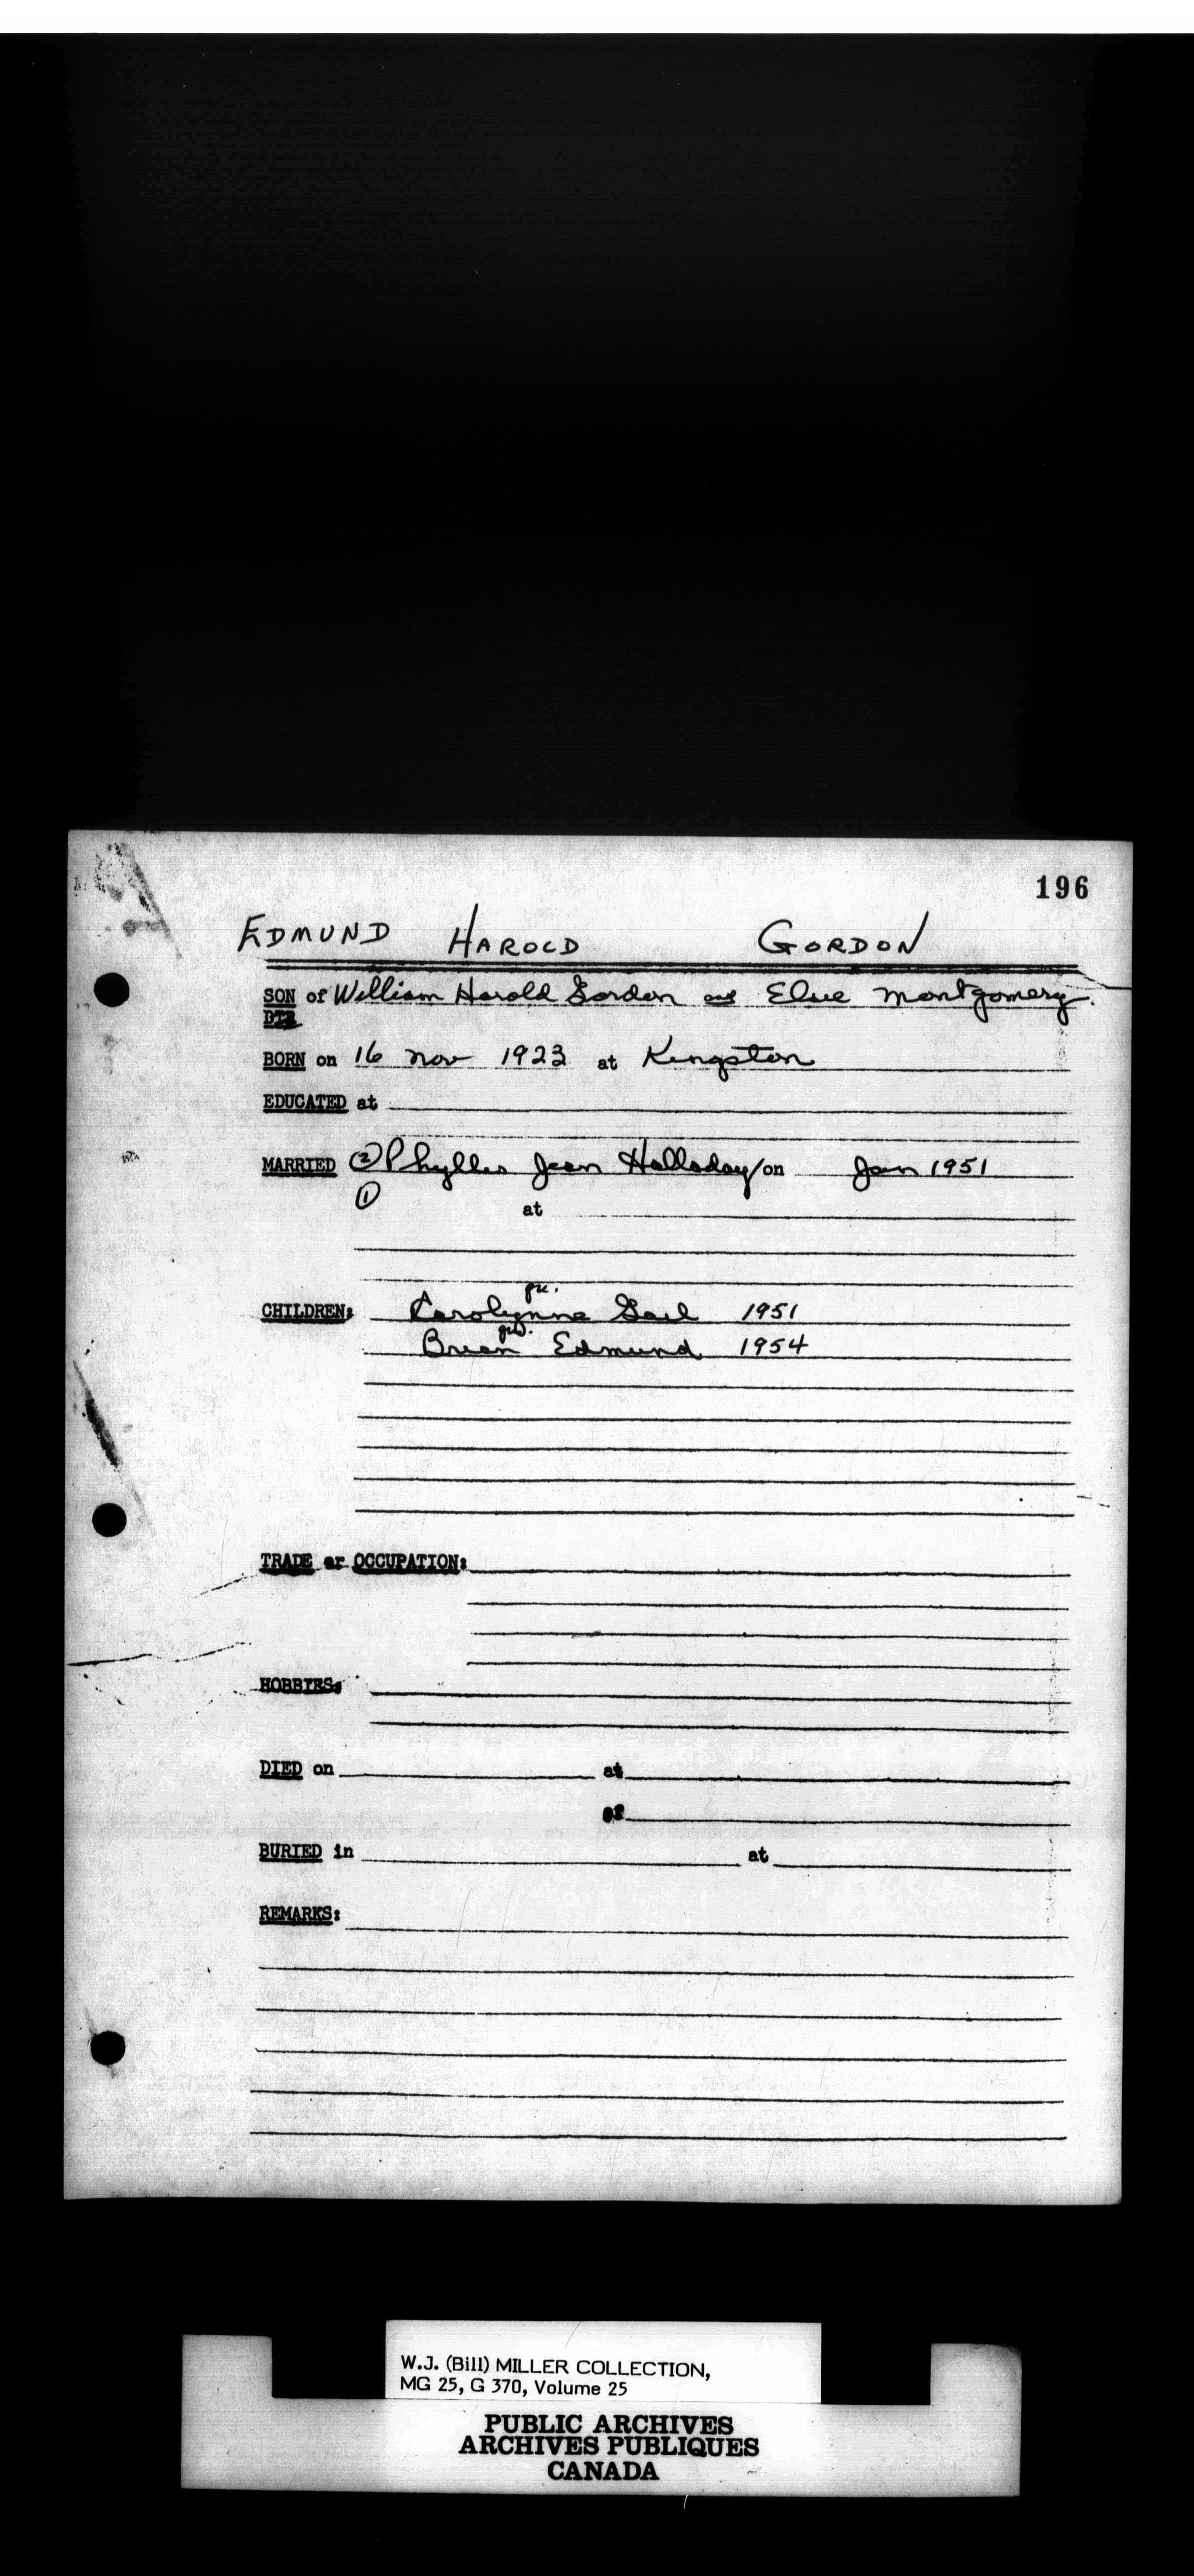 196
EDMUND HAROLD GORDON
SON of William Harold Gordon and Elsie Montgomery.
DTR
BORN on 16 Nov 1923 at Kingston
EDUCATED at
MARRIED ② Phyllis Jean Halladay on Jan 1951
① at
CHILDREN: Carolynne Gail 1951
Brian Edmund 1954
TRADE or OCCUPATION:
HOBBIES:
DIED on at
of
BURIED in at
REMARKS:
W.J. (Bill) MILLER COLLECTION,
MG 25, G 370, Volume 25
PUBLIC ARCHIVES
ARCHIVES PUBLIQUES
CANADA